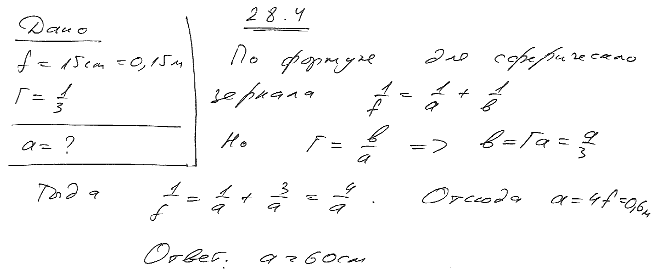 28.4
Дано
f = 15см = 0,15м
Г = 1/3
a = ?
По формуле для сферического
зеркала 1/f = 1/a + 1/в
Но Г = в/a => в = Га = a/3
Тогда 1/f = 1/a + 3/a = 4/a . Отсюда a = 4f = 0,6м
Ответ: a = 60см